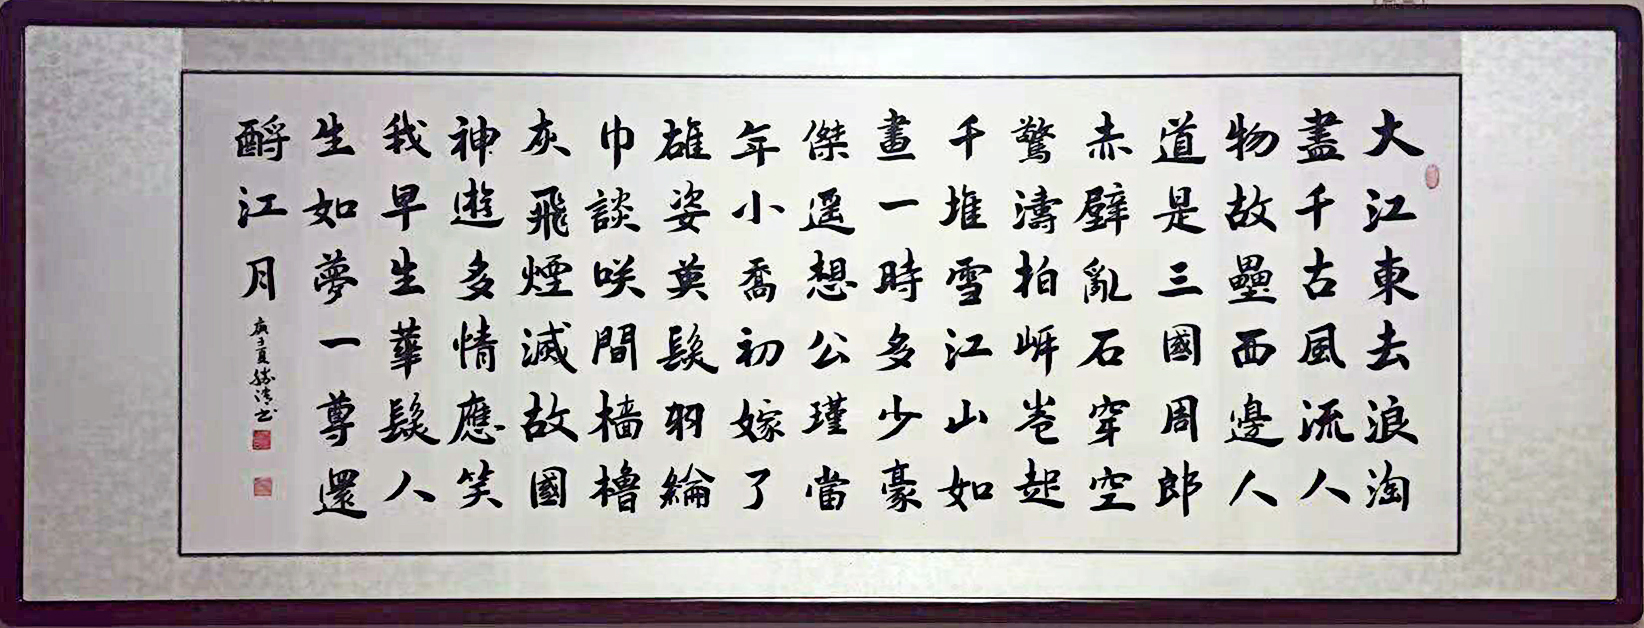 大江東去浪淘
盡千古風流人
物故壘西邊人
道是三國周郎
赤壁亂石穿空
驚濤拍岍卷起
千堆雪江山如
畫一時多少豪
傑遥想公瑾當
年小喬初嫁了
雄姿英髮羽綸
巾談咲間檣櫓
灰飛煙滅故國
神遊多情應笑
我早生華髮人
生如夢一尊還
酹江月
庚子夏